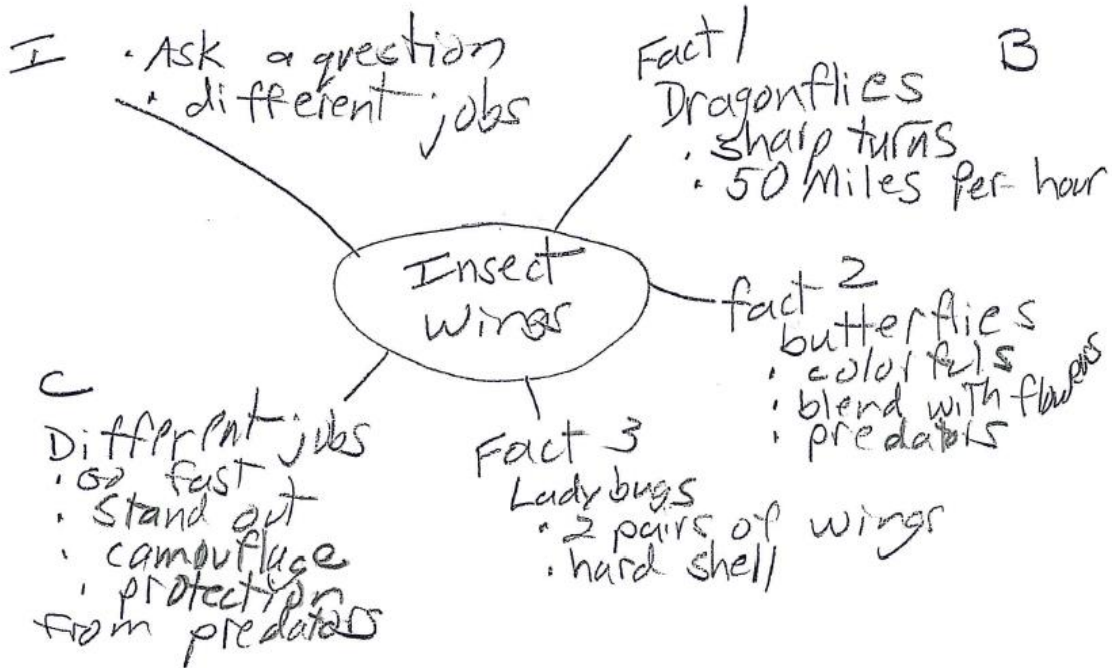 I
· Ask a question
· different jobs
Fact 1
B
Dragonflies
· sharp turns
· 50 Miles per hour
Insect
wings
fact 2
butterflies
· colorfuls
· blend with flowers
· predators
Fact 3
Ladybugs
· 2 pairs of wings
· hard shell
C
Different jobs
· Go fast
· Stand out
· camouflage
· protection
from predators